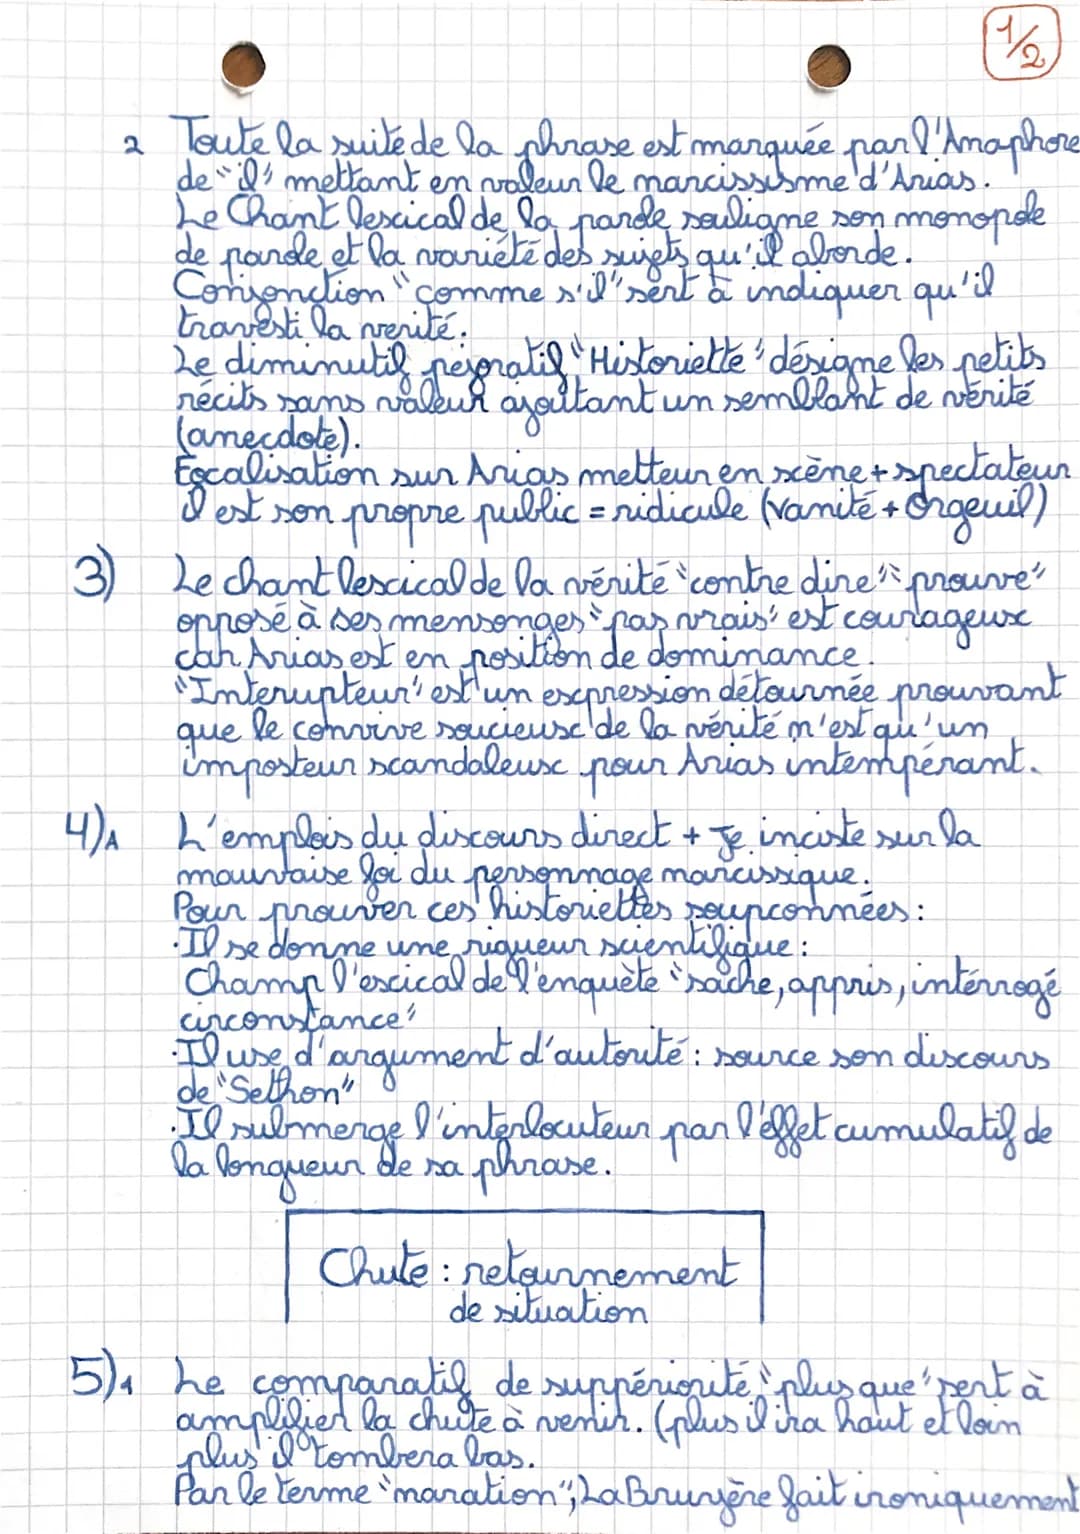 1/2
2 Toute la suite de la phrase est marquée par l'Anaphore
de "il" mettant en valeur le narcissisme d'Arias.
Le Chant lescical de la parole souligne son monopole
de parole et la variété des sujets qu'il aborde.
Conjonction "comme s'il" sert à indiquer qu'il
travesti la verité.
Le diminutif pejoratif "Historiette" désigne les petits
récits sans valeur ajoutant un semblant de vérité
(anecdote).
Focalisation sur Arias metteur en scène + spectateur
il est son propre public = ridicule (vanité + Orgeuil)
3) Le chant lescical de la vérité "contre dire" "prouve"
opposé à ses mensonges "pas vrais" est courageux
car Arias est en position de dominance.
"Interupteur" est un expression détournée prouvant
que le convive soucieux de la vérité n'est qu'un
imposteur scandaleux pour Arias intempérant.
4)A L'emplois du discours direct + Je inciste sur la
mauvaise foi du personnage narcissique.
Pour prouver ces historiettes soupconnées :
·Il se donne une rigueur scientifique :
Champ l'escical de l'enquète "sache, appris, intérrogé
circonstance"
·Il use d'argument d'autorité : source son discours
de "Sethon"
·Il submerge l'interlocuteur par l'éffet cumulatif de
la longueur de sa phrase.
Chute : retournement
de situation
5)1 Le comparatif de suppériorité "plus que" sert à
amplifier la chute à venir. (plus il ira haut et loin
plus il tombera bas.
Par le terme "naration", La Bruyère fait ironiquement